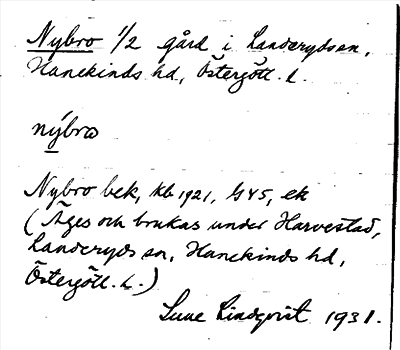 Nybro 1/2 gård i Landerydssn,
Hanekinds hd, Östergötl. l.
nýbrω
Nybro bek, kb 1921, G45, ek
(Äges och brukas under Harvestad,
Landeryds sn, Hanekinds hd,
Östergötl. l.)
Sune Lindqvist 1931.